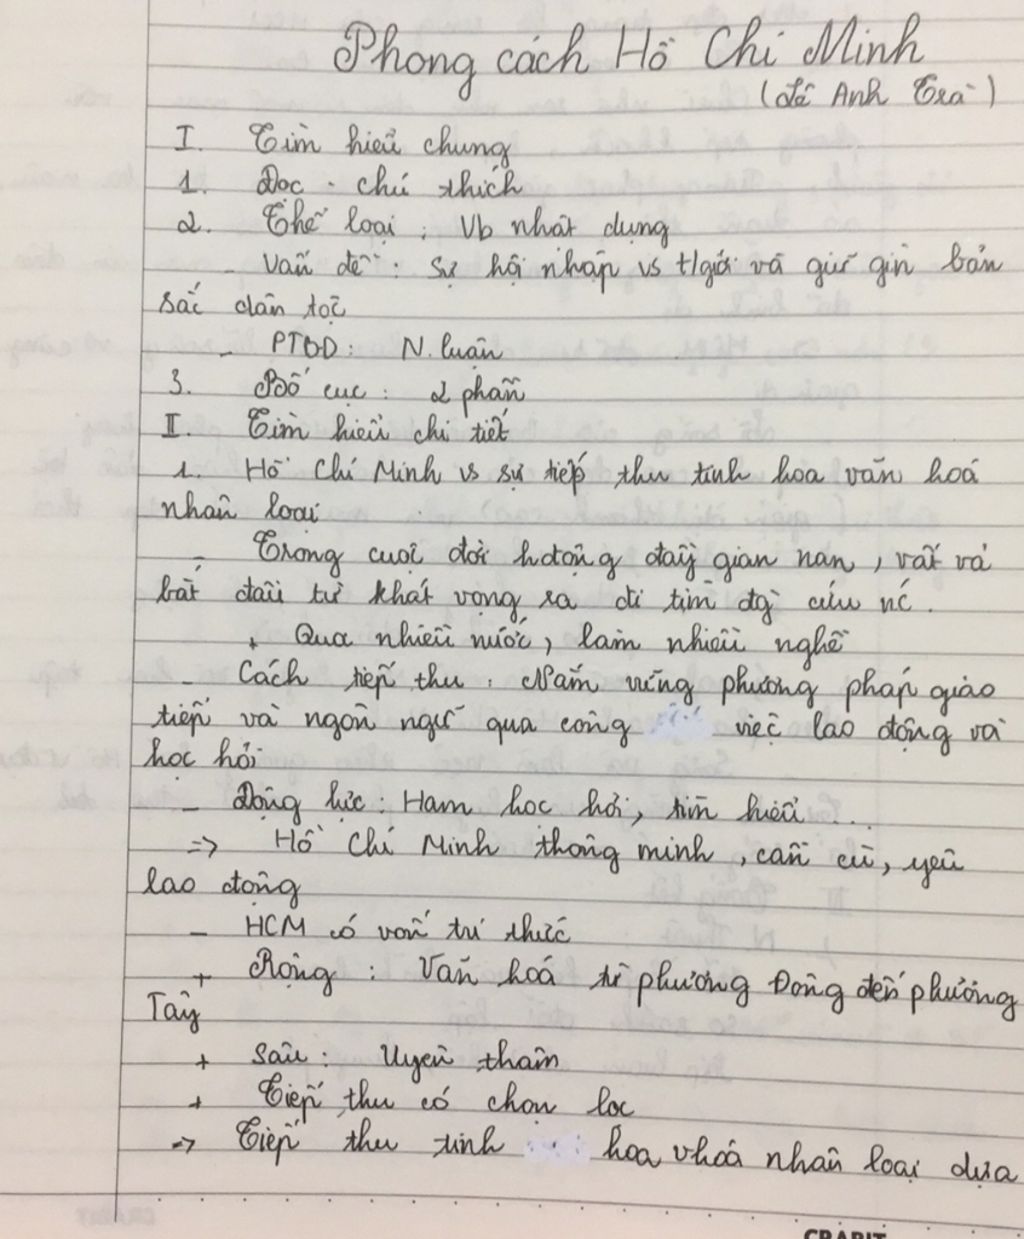 Phong cách Hồ Chí Minh
(Lê Anh Trà)
I. Tìm hiểu chung
1. Đọc - chú thích
2. Thể loại: Vb nhật dụng
- Vấn đề: Sự hội nhập vs t/giới và giữ gìn bản
sắc dân tộc
- PTBĐ: N. luận
3. Bố cục: 2 phần
II. Tìm hiểu chi tiết
1. Hồ Chí Minh vs sự tiếp thu tinh hoa văn hoá
nhân loại
- Trong cuộc đời hđộng đầy gian nan, vất vả
bắt đầu từ khát vọng ra đi tìm đg cứu nc.
+ Qua nhiều nước, làm nhiều nghề
- Cách tiếp thu: Nắm vững phương pháp giao
tiếp và ngôn ngữ qua công việc lao động và
học hỏi
- Động lực: Ham học hỏi, tìm hiểu...
=> Hồ Chí Minh thông minh, cần cù, yêu
lao động
- HCM có vốn tri thức
+ Rộng: Văn hoá từ phương Đông đến phương
Tây
+ Sâu: Uyên thâm
+ Tiếp thu có chọn lọc
=> Tiếp thu tinh hoa vhoá nhân loại dựa